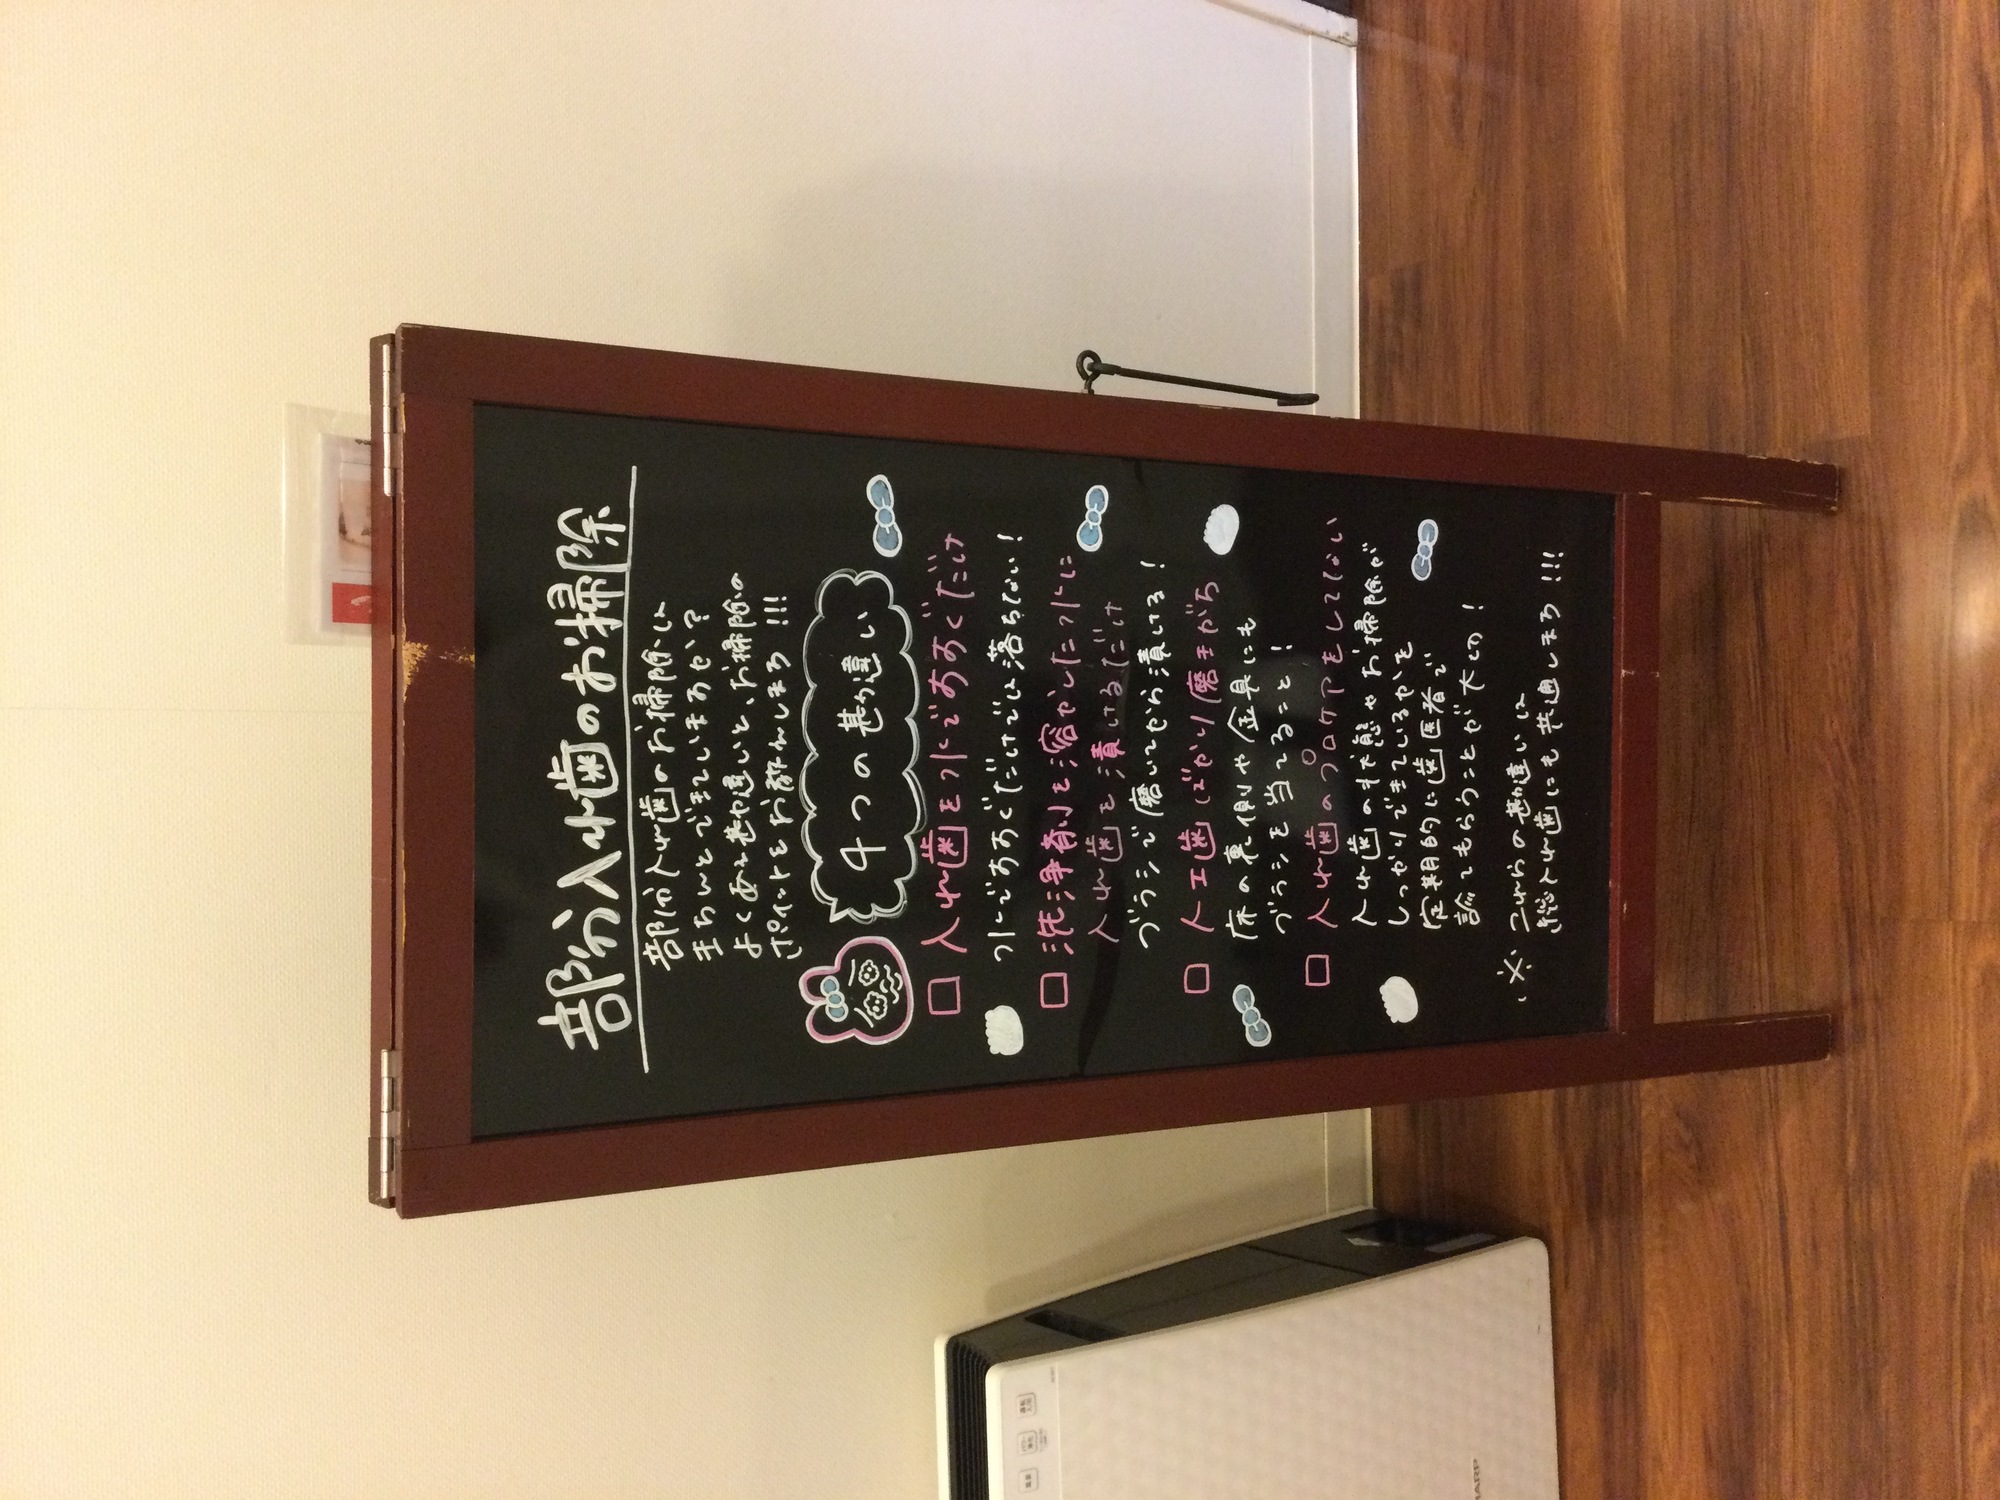 部分入れ歯のお掃除
部分入れ歯のお掃除は
きちんとできていますか?
よくある勘違いと、お掃除の
ポイントをお教えします!!!
4つの勘違い
□ 入れ歯を水ですすぐだけ
水ですすぐだけでは落ちない!
□ 洗浄剤を溶かした水に
入れ歯を漬けるだけ
ブラシで磨いてから漬ける!
□ 人工歯ばかり磨きがち
床の裏側や金具にも
ブラシを当てること!
□ 入れ歯のプロケアをしてない
入れ歯の状態やお掃除が
しっかりできているかを
定期的に歯医者で
診てもらうことが大切!
※ これらの勘違いは
総入れ歯にも共通します!!!
SHARP